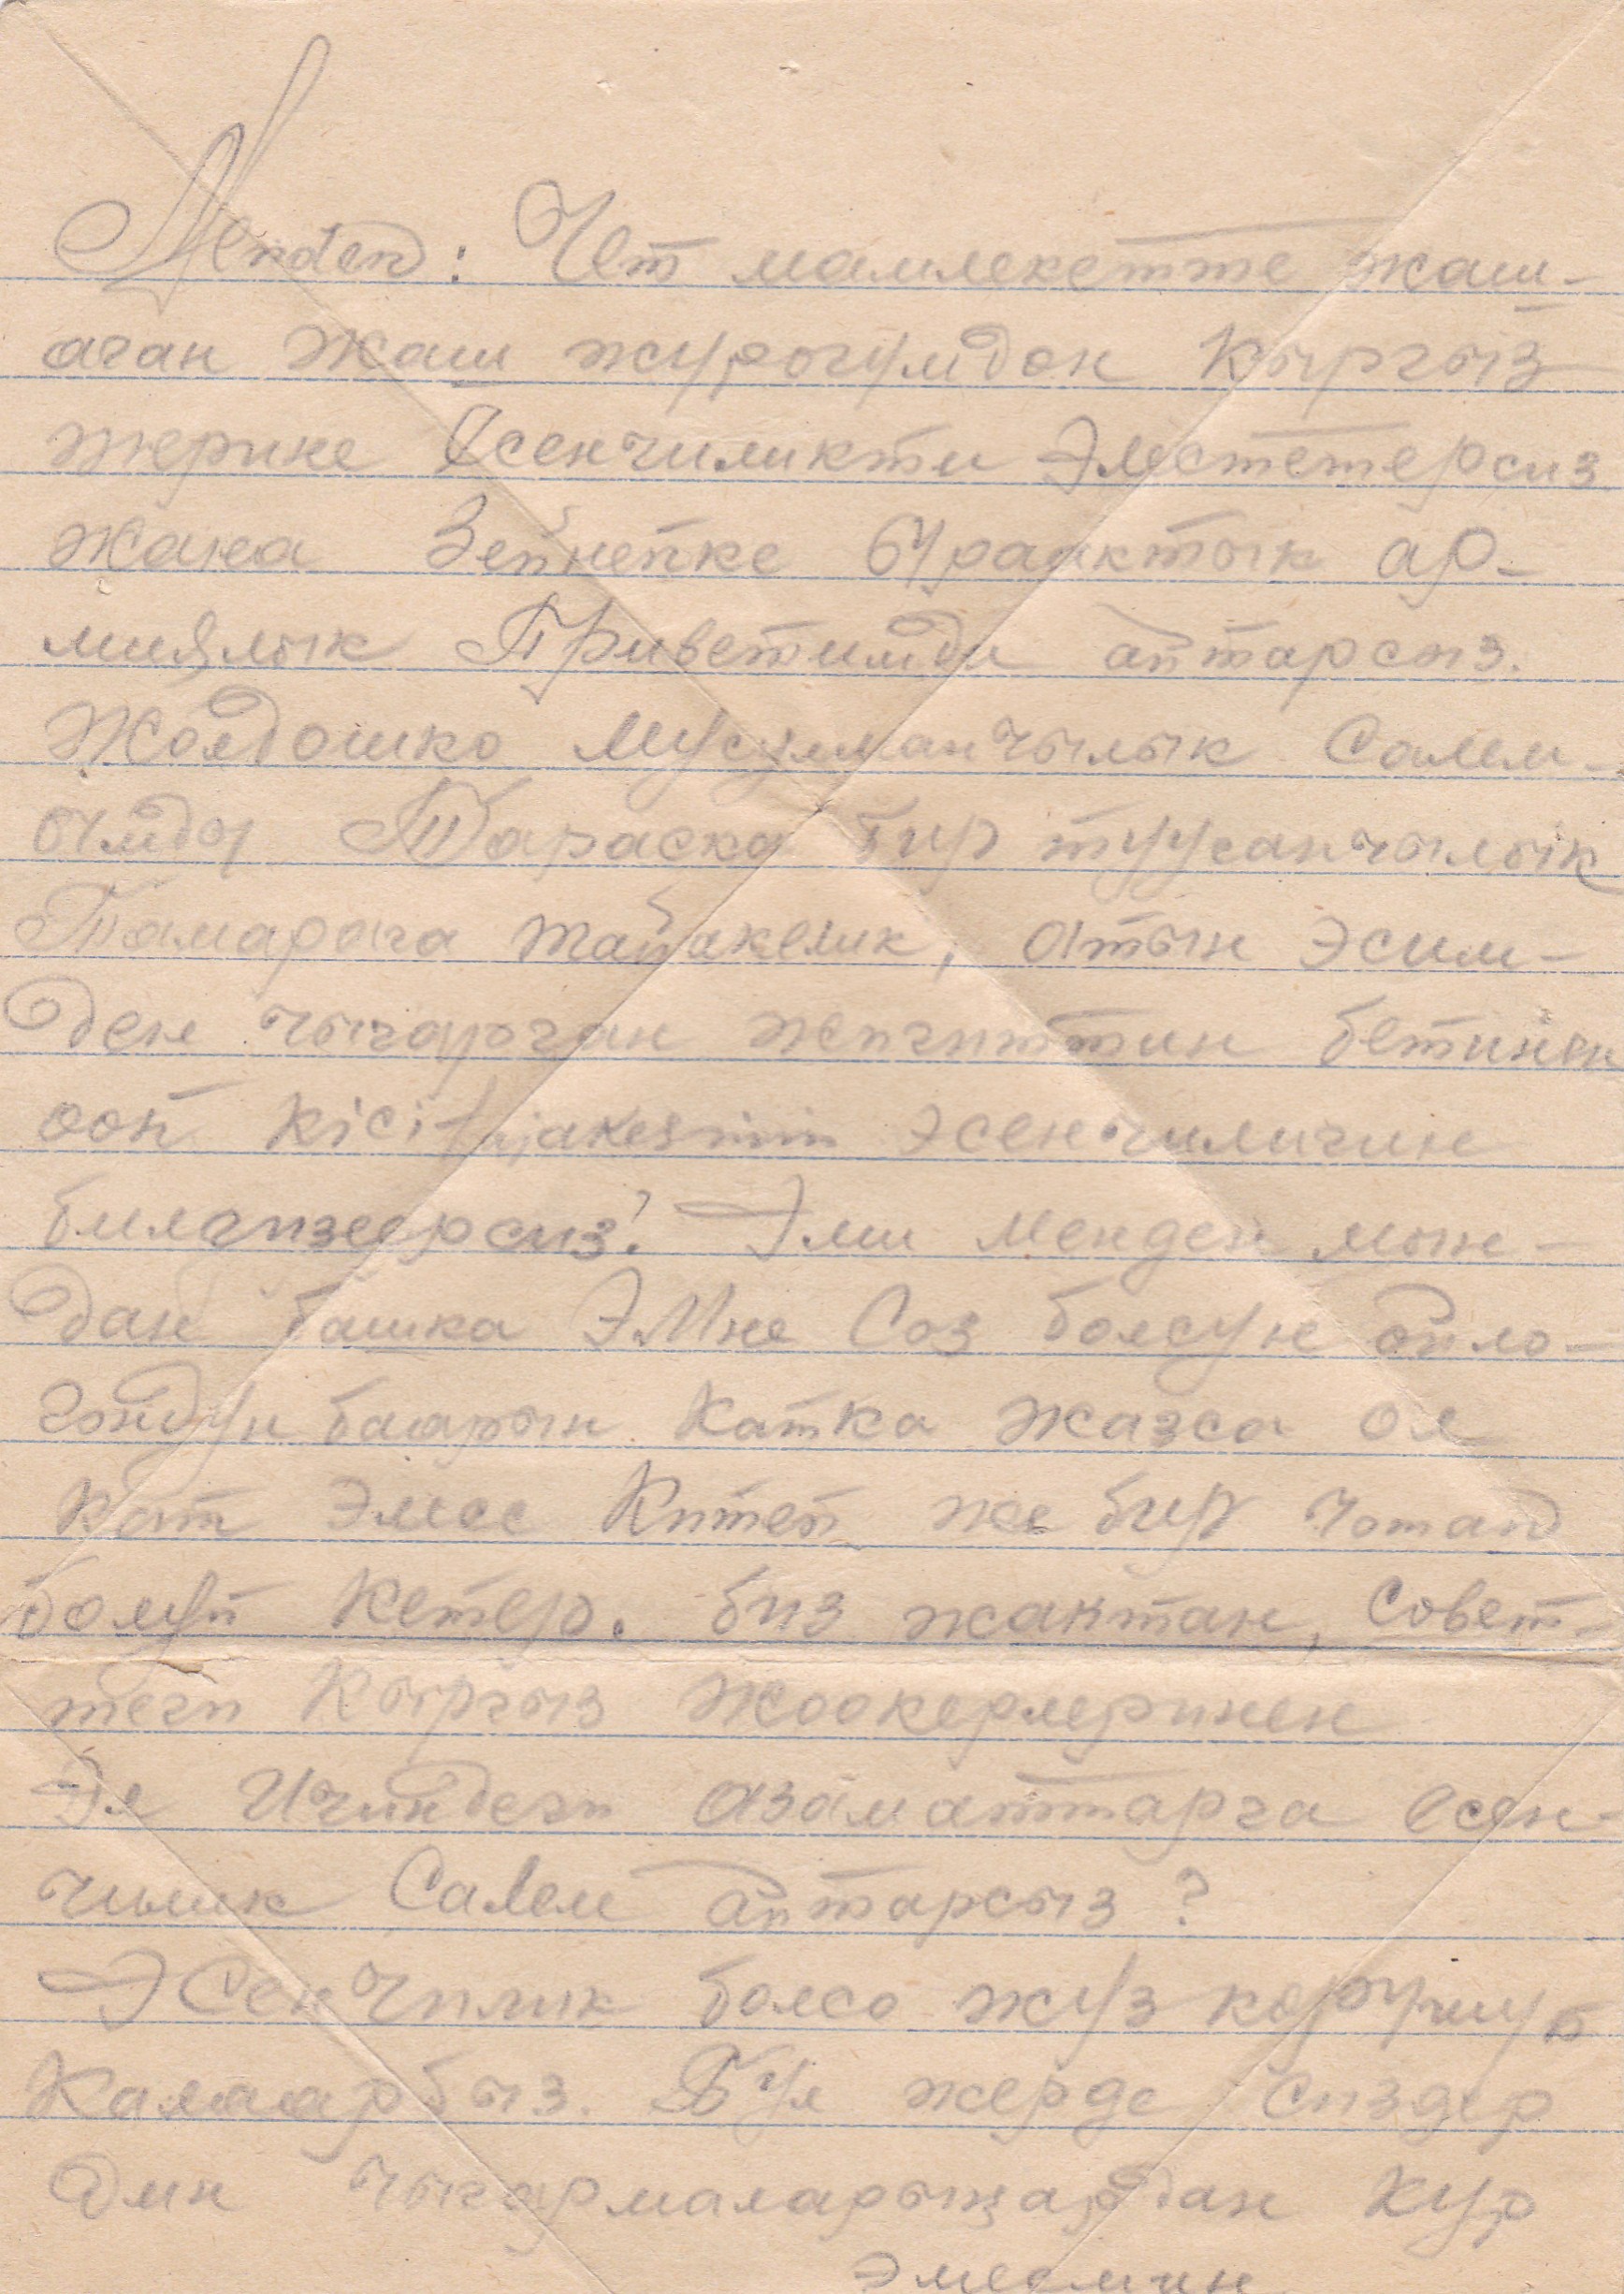 Menden: Чет мамлекетте жаш-
аган жаш журогумдон Кыргыз
жерине Эсенчиликти Элестетерсиз
жана Зейнепке ыраактык ар-
миялык Приветимди айтарсыз.
Жолдошко мусулманчылык Салем-
ымды Тараска бир тууганчылык
Тамарага жайакелик, атын эсим-
ден чыгарган жигиттин бетинен
ооп эсенчилигин
билгизеерсиз! Эми менден мын-
дан башка ЭМне Соз болсун ойло-
гондун баарын Катка жазса ол
кат эмес Китеп же бир чотанд
болуп кетер. биз жактан, совет-
теги Кыргыз жоокерлеринен
Эл Ичиндеги азаматтарга есен-
чилик Салем айтарсыз?
ЭсенЧилик болсо жуз корушуб
Калаарбыз. Бул жерде сиздер
дин чыгармаларыңардан кур
эмесмин